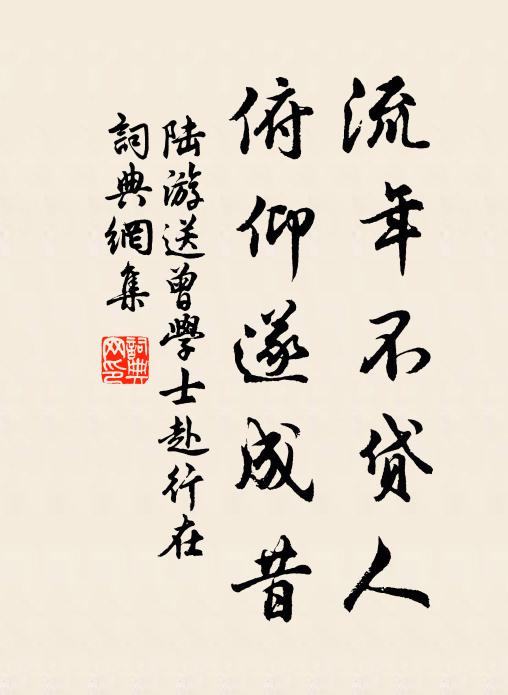 流年不贷人
俯仰遂成昔
陆游送曾學士赴行在
詞典網集
詞典網印